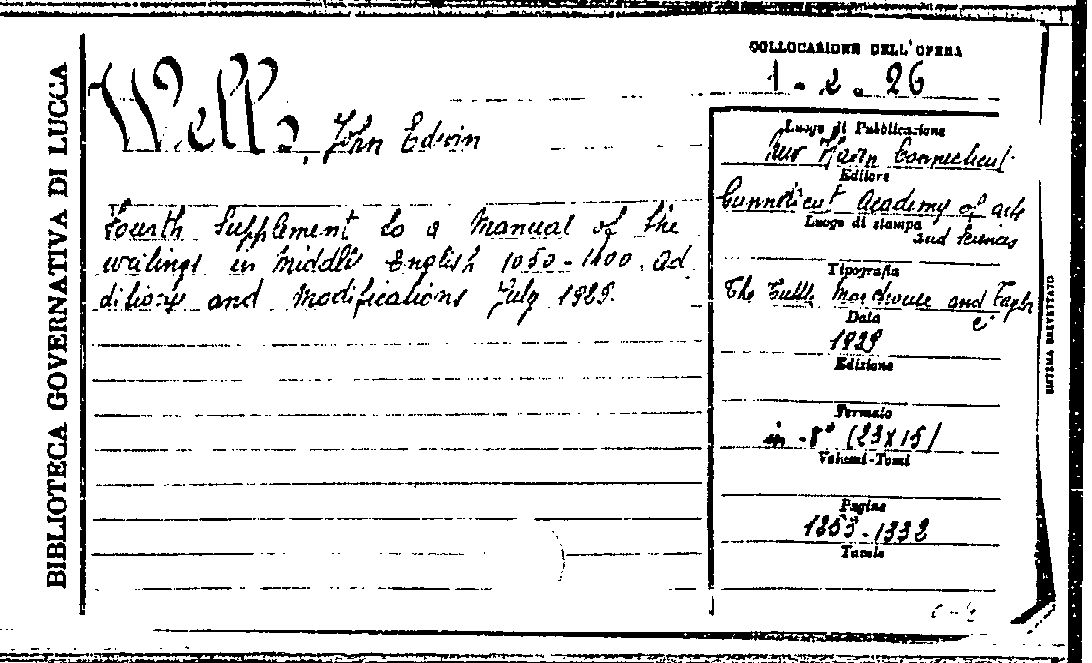 BIBLIOTECA GOVERNATIVA DI LUCCA
COLLOCAZIONE DELL'OPERA
1 - 2 . 26
Wells, John Edwin
Fourth Supplement to a Manual of the
writings in Middle English 1050-1400. Ad
ditions and Modifications July 1929.
Luogo di Pubblicazione
New Haven Connecticut
Editore
Connecticut Academy of arts
Luogo di stampa
and Sciences
Tipografia
The Tuttle Morehouse and Taylor
C.
Data
1929
Edizione
Formato
in -8° (23X15)
Volumi-Tomi
Pagine
-1332
Tavole
SISTEMA BREVETTATO